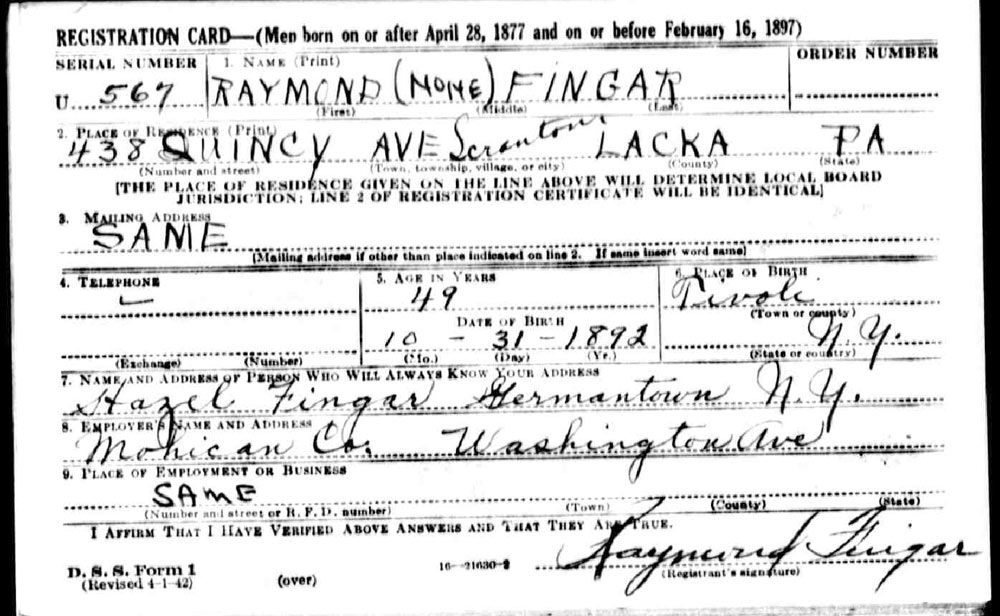 REGISTRATION CARD—(Men born on or after April 28, 1877 and on or before February 16, 1897)
SERIAL NUMBER 1. NAME (Print) ORDER NUMBER
U 567 RAYMOND (NONE) FINGAR
(First) (Middle) (Last)
2. PLACE OF RESIDENCE (Print)
438 QUINCY AVE Scranton LACKA PA
(Number and street) (Town, township, village, or city) (County) (State)
[THE PLACE OF RESIDENCE GIVEN ON THE LINE ABOVE WILL DETERMINE LOCAL BOARD
JURISDICTION; LINE 2 OF REGISTRATION CERTIFICATE WILL BE IDENTICAL]
3. MAILING ADDRESS
SAME
[Mailing address if other than place indicated on line 2. If same insert word same]
4. TELEPHONE 5. AGE IN YEARS 6. PLACE OF BIRTH
49 Tivoli
(Town or county)
DATE OF BIRTH
10 - 31 - 1892 N.Y.
(Exchange) (Number) (Mo.) (Day) (Yr.) (State or country)
7. NAME AND ADDRESS OF PERSON WHO WILL ALWAYS KNOW YOUR ADDRESS
Hazel Fingar Germantown N.Y.
8. EMPLOYER'S NAME AND ADDRESS
Mohican Co. Washington Ave
9. PLACE OF EMPLOYMENT OR BUSINESS
SAME
(Number and street or R. F. D. number) (Town) (County) (State)
I AFFIRM THAT I HAVE VERIFIED ABOVE ANSWERS AND THAT THEY ARE TRUE.
Raymond Fingar
D. S. S. Form 1
(Revised 4-1-42) (over) 16—21630-2 (Registrant's signature)